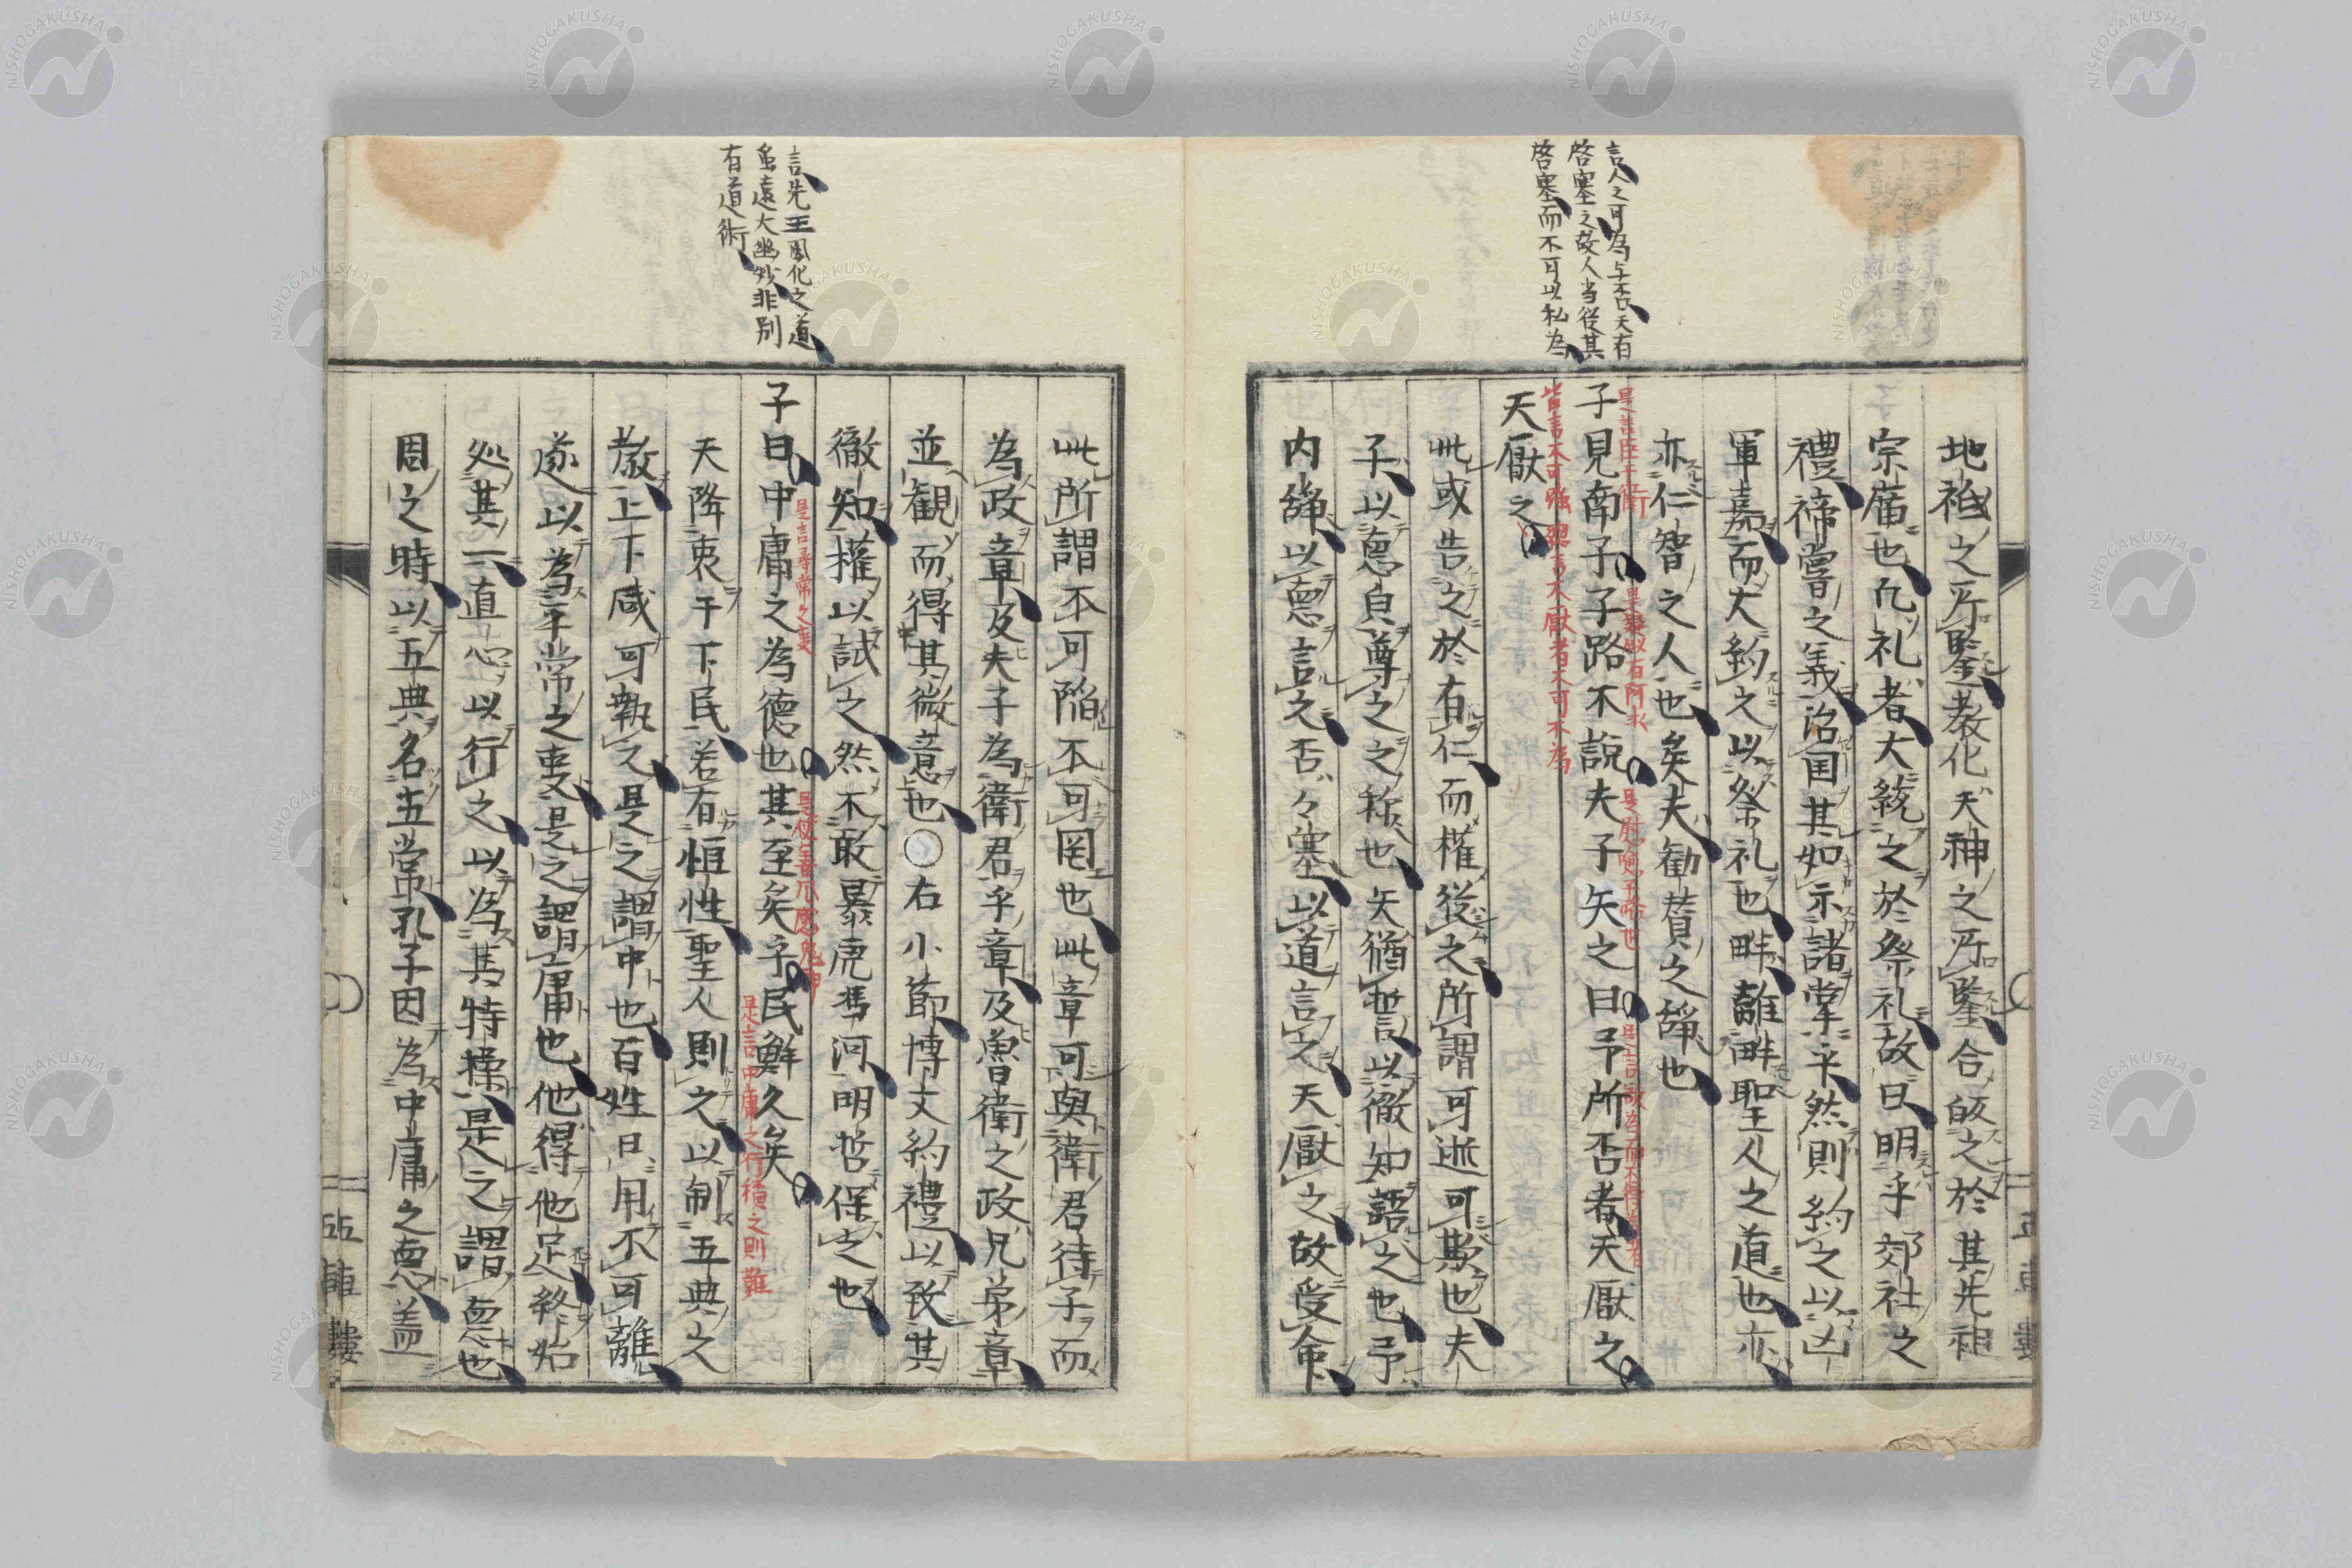 言人之可為与否天有
啓塞之故人当從其
啓塞而不可以私為
地祗之所鑒教化天神之所鑒合皈之於其先祖
宗庿也凡礼者大統之於祭礼故曰明乎郊社之
禮禘嘗之義治国其如示諸掌乎然則約之以凶
軍嘉而大約之以祭礼也畔離畔聖人之道也亦
亦仁智之人也矣夫勧賛之辞也
是言臣于衛
子見南子子路不説夫子矢之曰予所否者天厭之
是疑似有所求
是慰喩子路也
是言敢為而不得為者
天厭之
皆言不可強 總言不厭者不可不為
此或告之於有仁而權從之所謂可逝可欺也夫
子以悳自尊之之称也矢猶誓以徹知語之也予
内辞以悳言之否々塞以道言之天厭之故受命
五車樓
言先王風化之道
虽遠大幽妙非別
有道術
此所謂不可陥不可罔也此章可與衛君待子而
為政章及夫子為衛君乎章及魯衛之政兄弟章
並観而得其微意也○右小節博文約禮以致其
徹知權以試之然不敢暴虎馮河明哲保之也
子曰中庸之為徳也其至矣乎民鮮久矣
是言尋常之叓
是言中庸之行積之則難
天降衷于下民若有恒性聖人則之以制五典之
教上下咸可執之是之謂中也百姓日用不可離
遂以為平常之叓是之謂庸也他得他足終始
処其一直心以行之以為其特操是之謂悳也
周之時以五典名五常孔子因為中庸之悳盖
五車樓